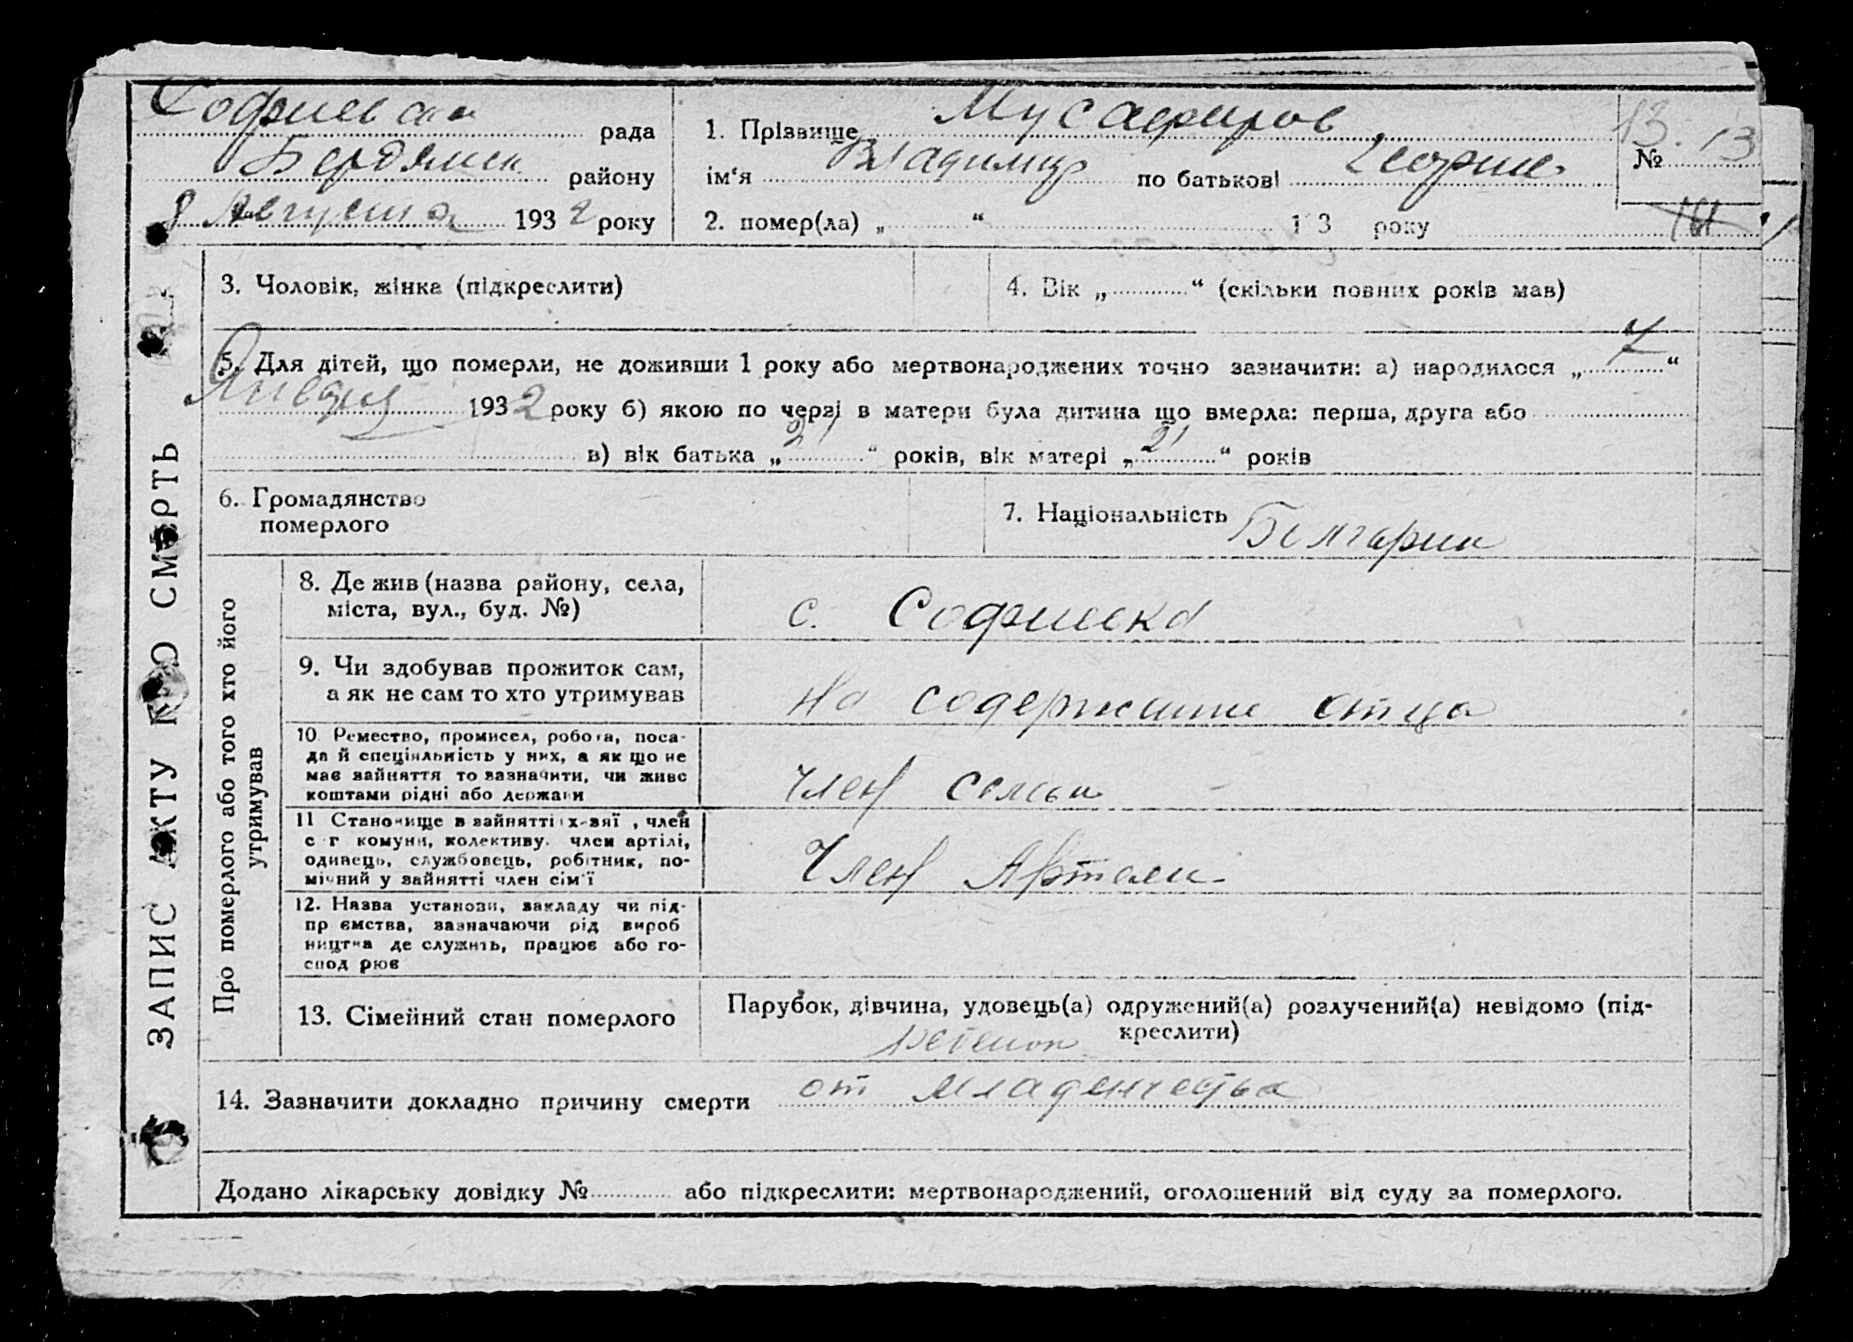 Софиевская рада
Бердянск району
8 Августа 1932 року
1. Прізвище Мусафиров
ім'я Владимир по батькові Георгие.
2. помер(ла) „ “ 1 3 року
13.
№ 13
ЗАПИС АКТУ ПРО СМЕРТЬ
3. Чоловік, жінка (підкреслити)
4. Вік „ “ (скільки повних років мав)
5. Для дітей, що померли, не доживши 1 року або мертвонароджених точно зазначити: а) народилося „ 7 “
Января 1932 року б) якою по черзі в матери була дитина що вмерла: перша, друга або
в) вік батька „ 21 “ років, вік матері „ 21 “ років
6. Громадянство
померлого
7. Національність Болгарин
Про померлого або того хто його
утримував
8. Де жив (назва району, села,
міста, вул., буд. №)
с. Софиевка
9. Чи здобував прожиток сам,
а як не сам то хто утримував
На содержании отца
10 Ремество, промисел, робота, поса-
да й спеціяльність у них, а як що не
має зайняття то зазначити, чи живе
коштами рідні або держави
член семьи
11 Становище в зайнятті х-зяї , член
с г комуни, колективу. член артілі,
одинець, службовець, робітник, по-
мічний у зайнятті член сім'ї
Член Артели
12. Назва установи, закладу чи під-
пр ємства, зазначаючи рід вироб
ництва де служить, працює або го-
спод рює
13. Сімейний стан померлого
Парубок, дівчина, удовець(а) одружений(а) розлучений(а) невідомо (під-
креслити)
ребенок
14. Зазначити докладно причину смерти от младенчества
Додано лікарську довідку № або підкреслити: мертвонароджений, оголошений від суду за померлого.